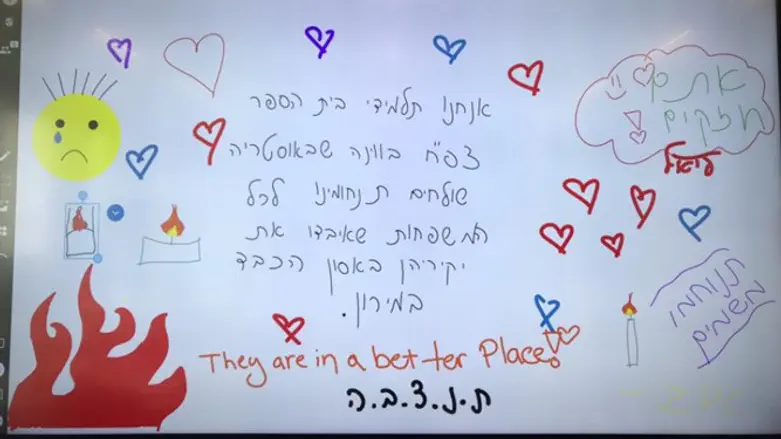 אנחנו תלמידי בית הספר
צפ"ח בווינה שבאוסטריה
שולחים תנחומינו לכל
המשפחות שאיבדו את
יקיריהן באסון הכבד
במירון.
They are in a better Place!
ת.נ.צ.ב.ה
אתם
חזקים
תנוחמו
משמים